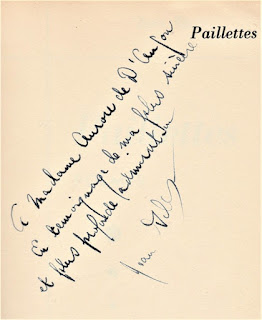 Paillettes
à Madame Aurore de D'
Ce témoignage de ma plus sincère
et plus profonde admiration
Jean